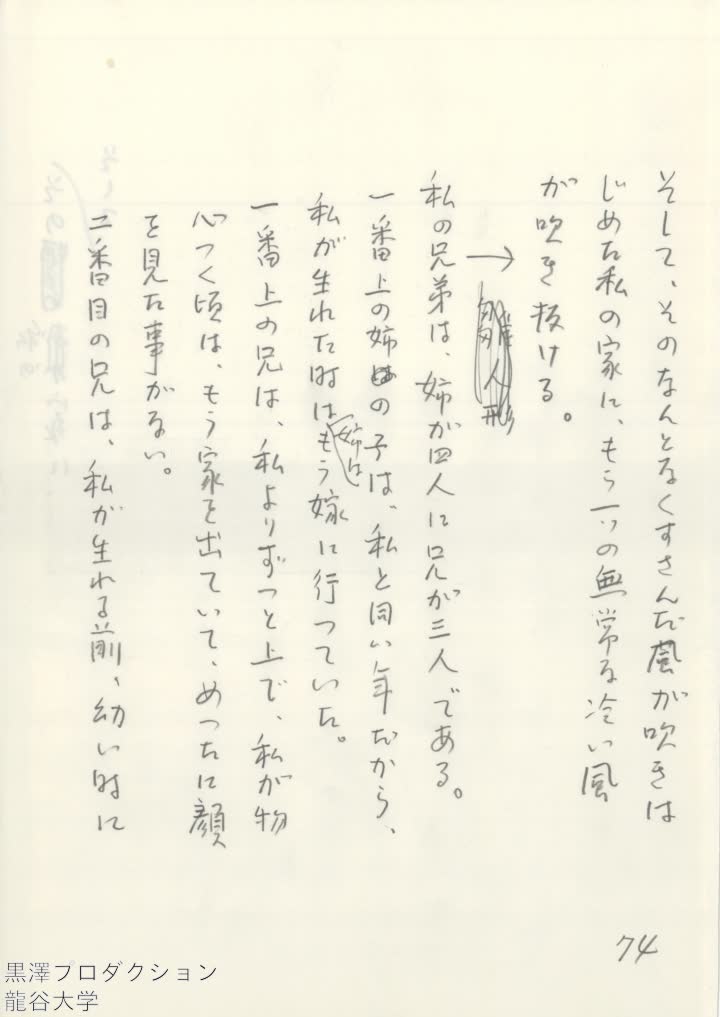 そして、そのなんとなくすさんだ風が吹きは
じめた私の家に、もう一つの無常な冷い風
が吹き抜ける。
雛人形
私の兄弟は、姉が四人に兄が三人である。
一番上の姉の子は、私と同い年だから、
私が生れた時は姉はもう嫁に行つていた。
一番上の兄は、私よりずつと上で、私が物
心つく頃は、もう家を出ていて、めつたに顔
を見た事がない。
二番目の兄は、私が生れる前、幼い時に
74
黒澤プロダクション
龍谷大学